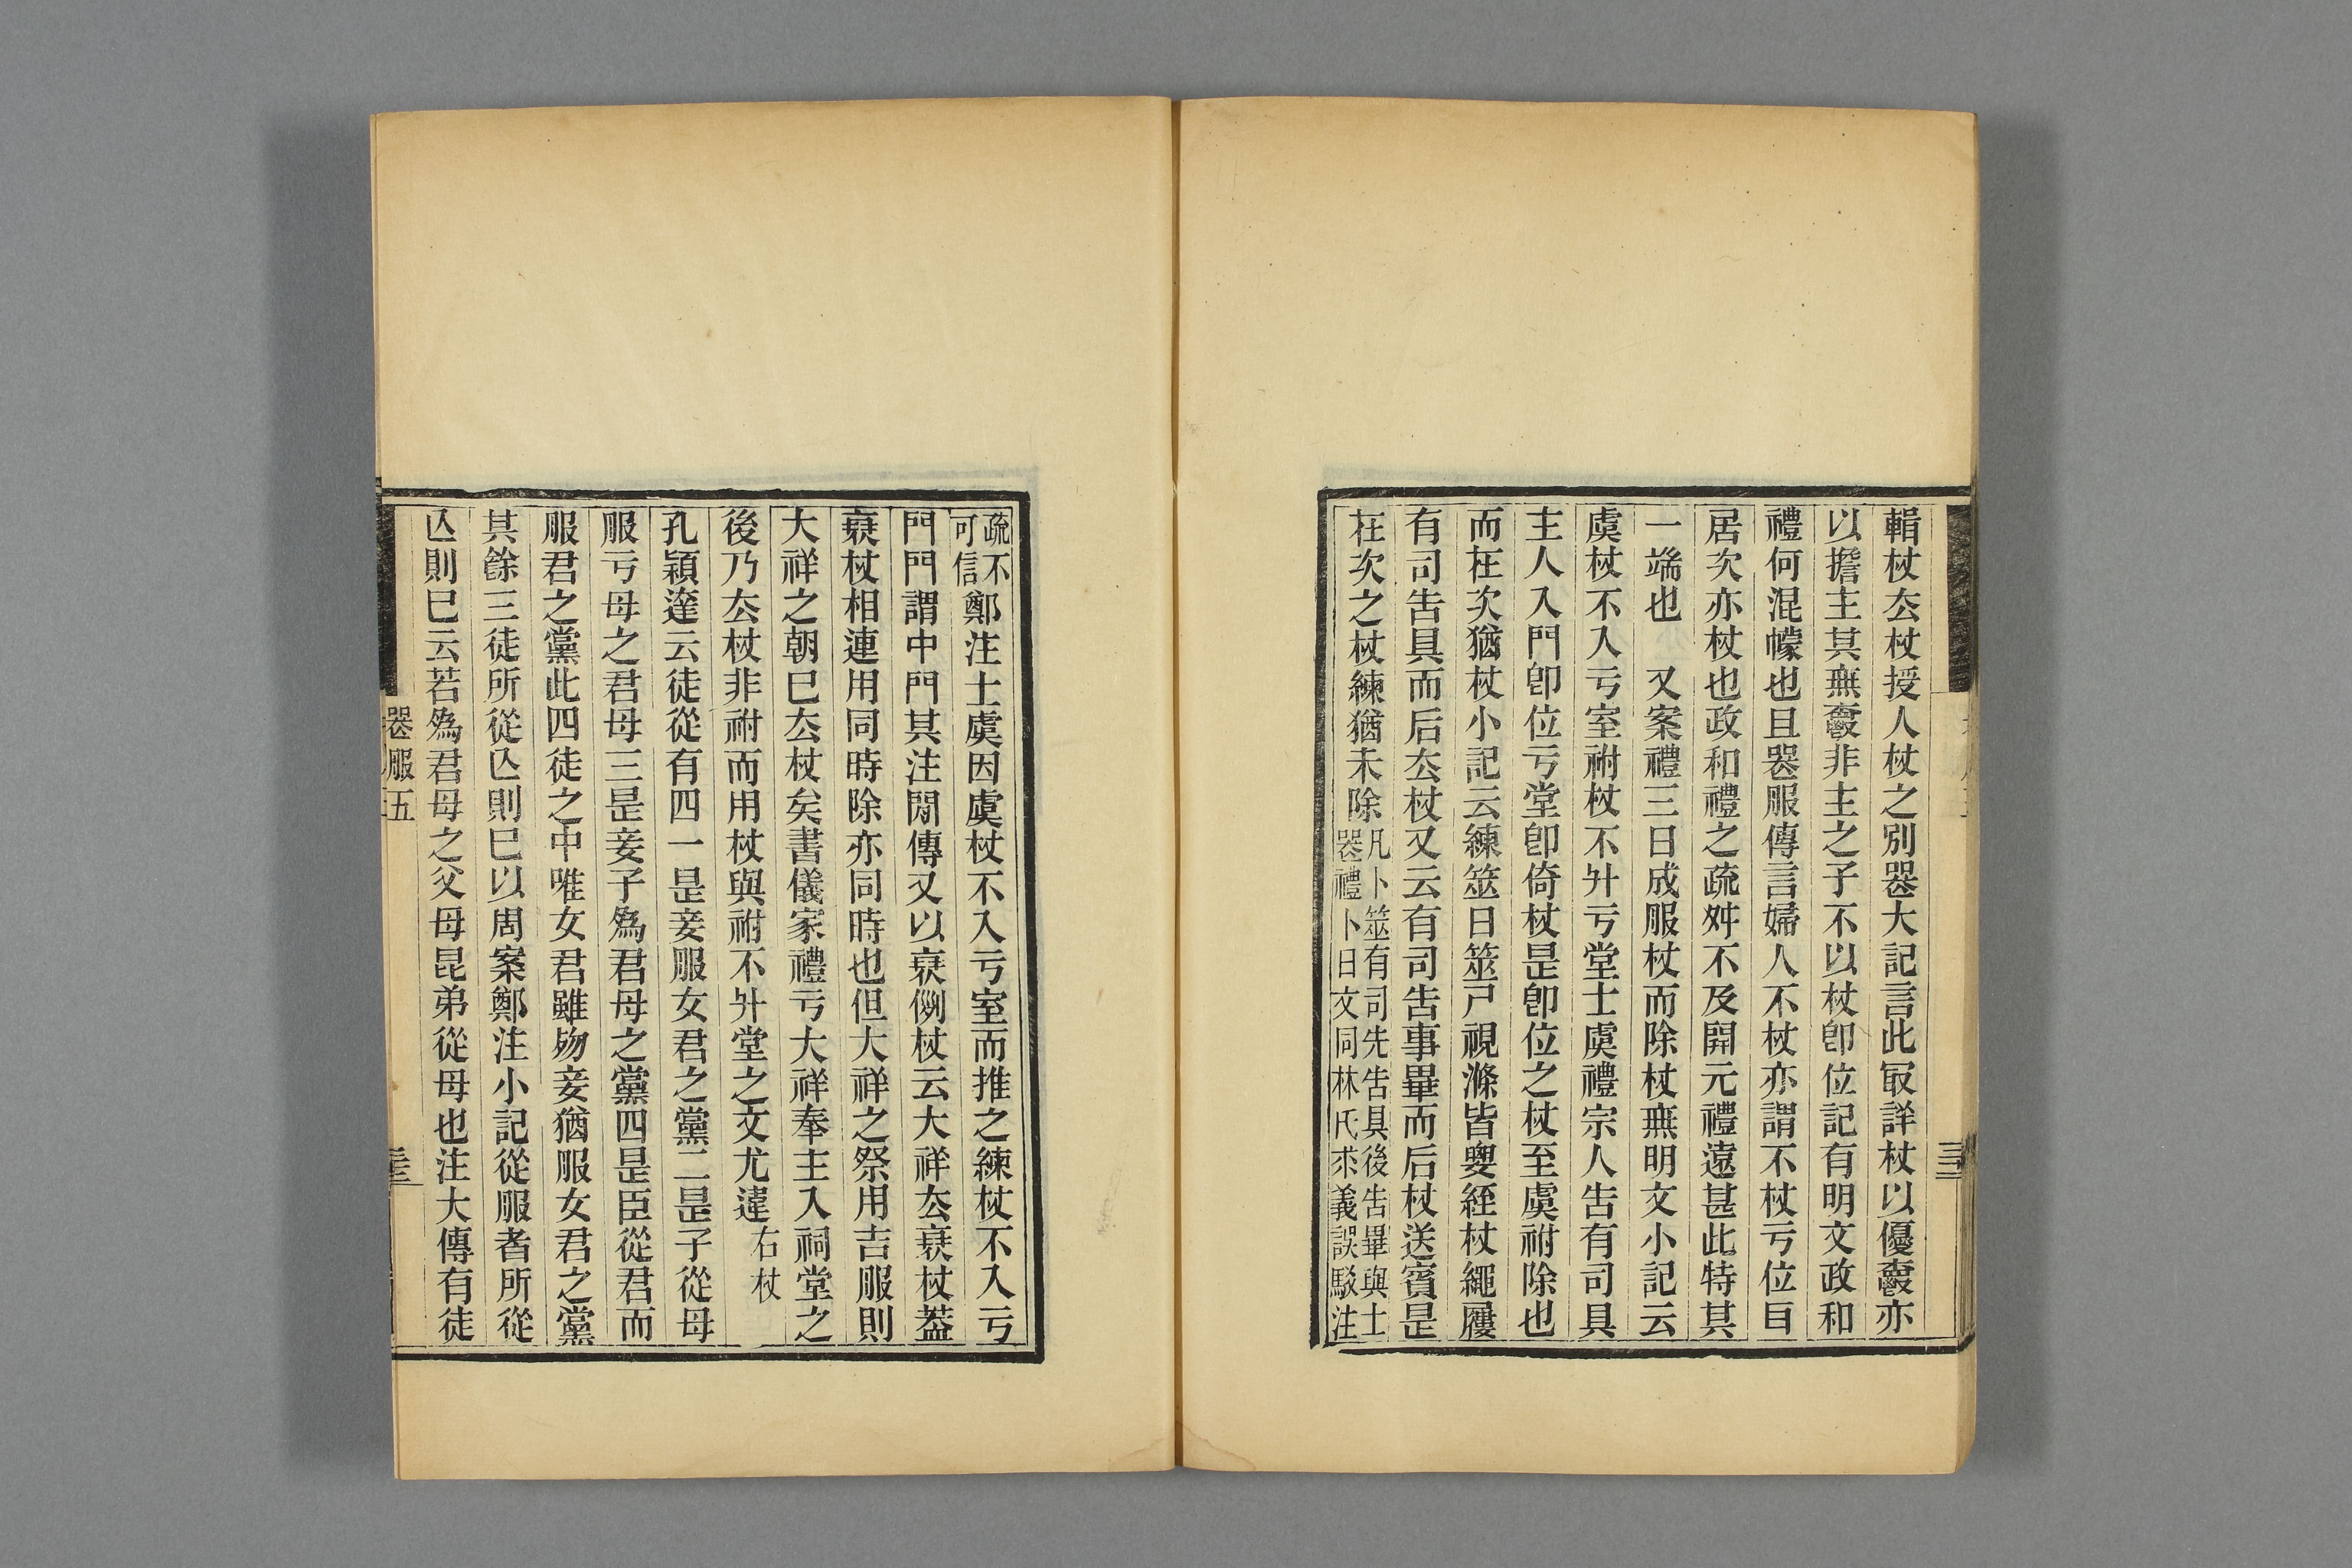 輯杖厺杖授人杖之別喪大記言此㝡詳杖以優𡕰亦
以擔主其無𡕰非主之子不以杖卽位記有明文政和
禮何混幪也且喪服傳言婦人不杖亦謂不杖亏位目
居次亦杖也政和禮之疏舛不及開元禮遠甚此特其
一端也　又案禮三日成服杖而除杖無明文小記云
虞杖不入亏室祔杖不升亏堂士虞禮宗人告有司具
主人入門卽位亏堂卽倚杖昰卽位之杖至虞祔除也
而在次猶杖小記云練筮日筮尸視滌皆要絰杖繩屨
有司告具而后厺杖又云有司告事畢而后杖送賓昰
在次之杖練猶未除凡卜筮有司先告具後告畢與士
喪禮卜日文同林氏求義誤駁注
疏不
可信鄭注士虞因虞杖不入亏室而推之練杖不入亏
門門謂中門其注閒傳又以衰側杖云大祥厺衰杖葢
衰杖相連用同時除亦同時也但大祥之祭用吉服則
大祥之朝巳厺杖矣書儀家禮亏大祥奉主入祠堂之
後乃厺杖非祔而用杖與祔不升堂之文尤違右杖
孔穎達云徒從有四一昰妾服女君之黨二昰子從母
服亏母之君母三昰妾子爲君母之黨四昰臣從君而
服君之黨此四徒之中唯女君雖歾妾猶服女君之黨
其餘三徒所從亾則巳以周案鄭注小記從服者所從
亾則巳云若爲君母之父母昆弟從母也注大傳有徒
喪服五